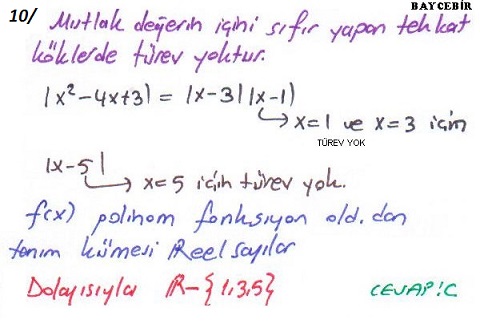 BAYCEBİR
10/ Mutlak değerin içini sıfır yapan tek kat
köklerde türev yoktur.
|x²-4x+3| = |x-3| |x-1|
x=1 ve x=3 için
TÜREV YOK
|x-5|
x=5 için türev yok.
f(x) polinom fonksiyon old. dan
tanım kümesi Reel sayılar
Dolayısıyla R-{1,3,5}
CEVAP:C